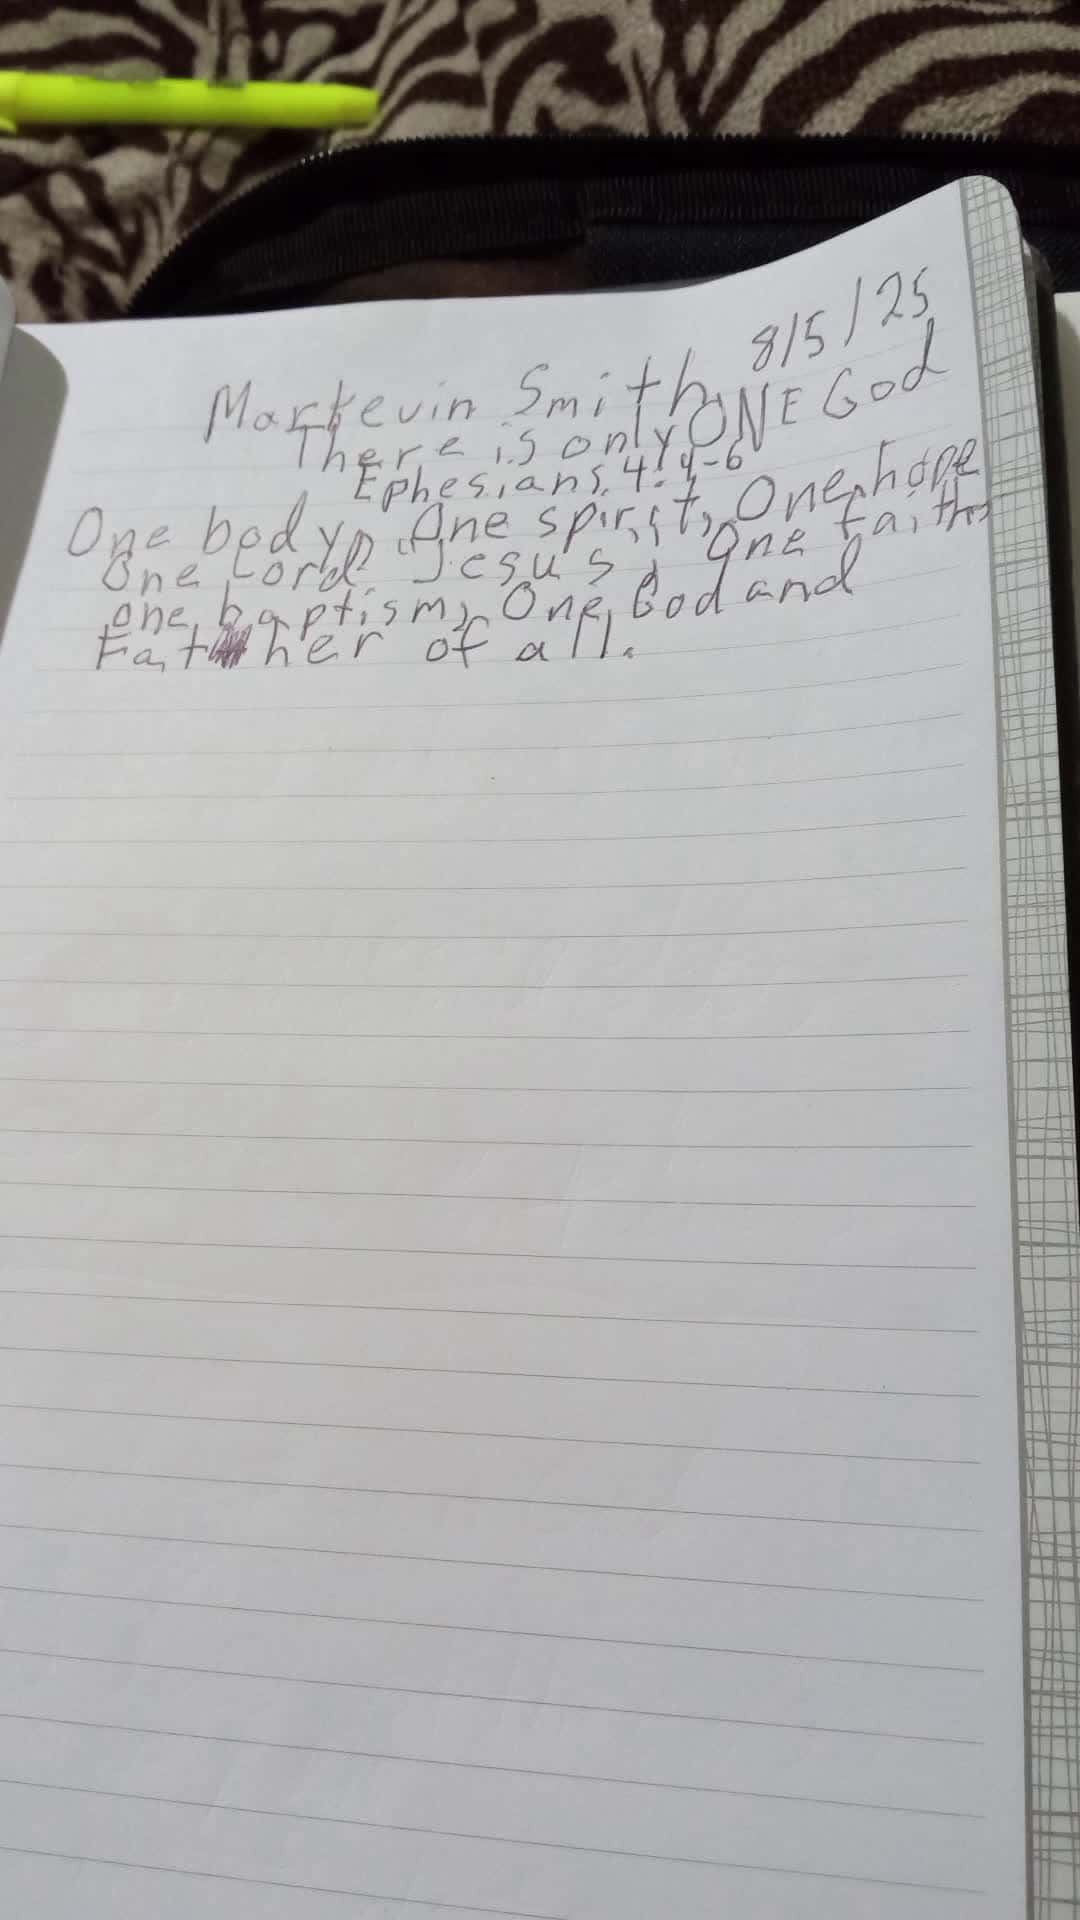 8/5/25
Markevin Smith
There is only ONE God
Ephesians. 4:4-6
One body, One spirit, One hope
One Lord Jesus, One faith,
one baptism, One God and
Father of all.